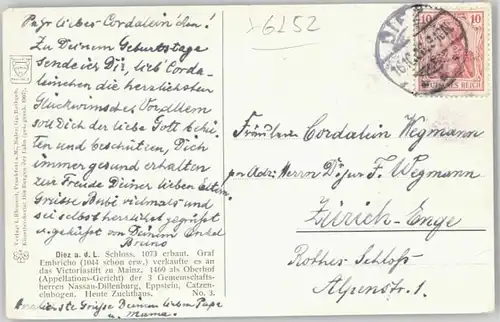 x6252
Mein liebes Cordalein'chen!
Zu Deinem Geburtstage
sende ich Dir, lieb' Corda-
leinchen die herzlichsten
Glückwünsche. Vor allem
soll Dich der liebe Gott behü-
ten und beschützen, Dich
immer gesund erhalten
zur Freude Deiner lieben Eltern.
Grüsse Bubi vielmals und
sei selbst herzlichst gegrüßt
u. geküßt von Deinem Onkel
Bruno
Diez a. d. L. Schloss. 1073 erbaut. Graf
Embricho (1044 schon erw.) verkaufte es an
das Victorstift zu Mainz. 1460 als Oberhof
(Appellations-Gericht) der 3 Gemeinschafts-
herren Nassau-Dillenburg, Eppstein, Catzen-
elnbogen. Heute Zuchthaus. No. 3.
Grüsse Deinen lieben Papa
u. Mama.
10 10
DEUTSCHES REICH
DIEZ
Fräulein Cordalein Wegmann
per Adr: Herrn Dr. jur F. Wegmann
Zürich-Enge
Rothes Schloss
Alpenstr. 1.